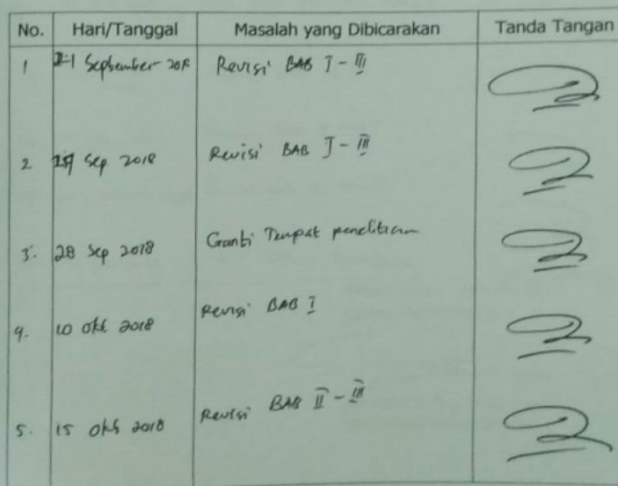 No. Hari/Tanggal Masalah yang Dibicarakan Tanda Tangan
1 21 September 2018 Revisi BAB I - III
2. Sep 2018 Revisi BAB I - III
3. 28 Sep 2018 Ganti Tempat penelitian
4. 10 Okt 2018 Revisi BAB I
5. 15 Okt 2018 Revisi BAB II - III